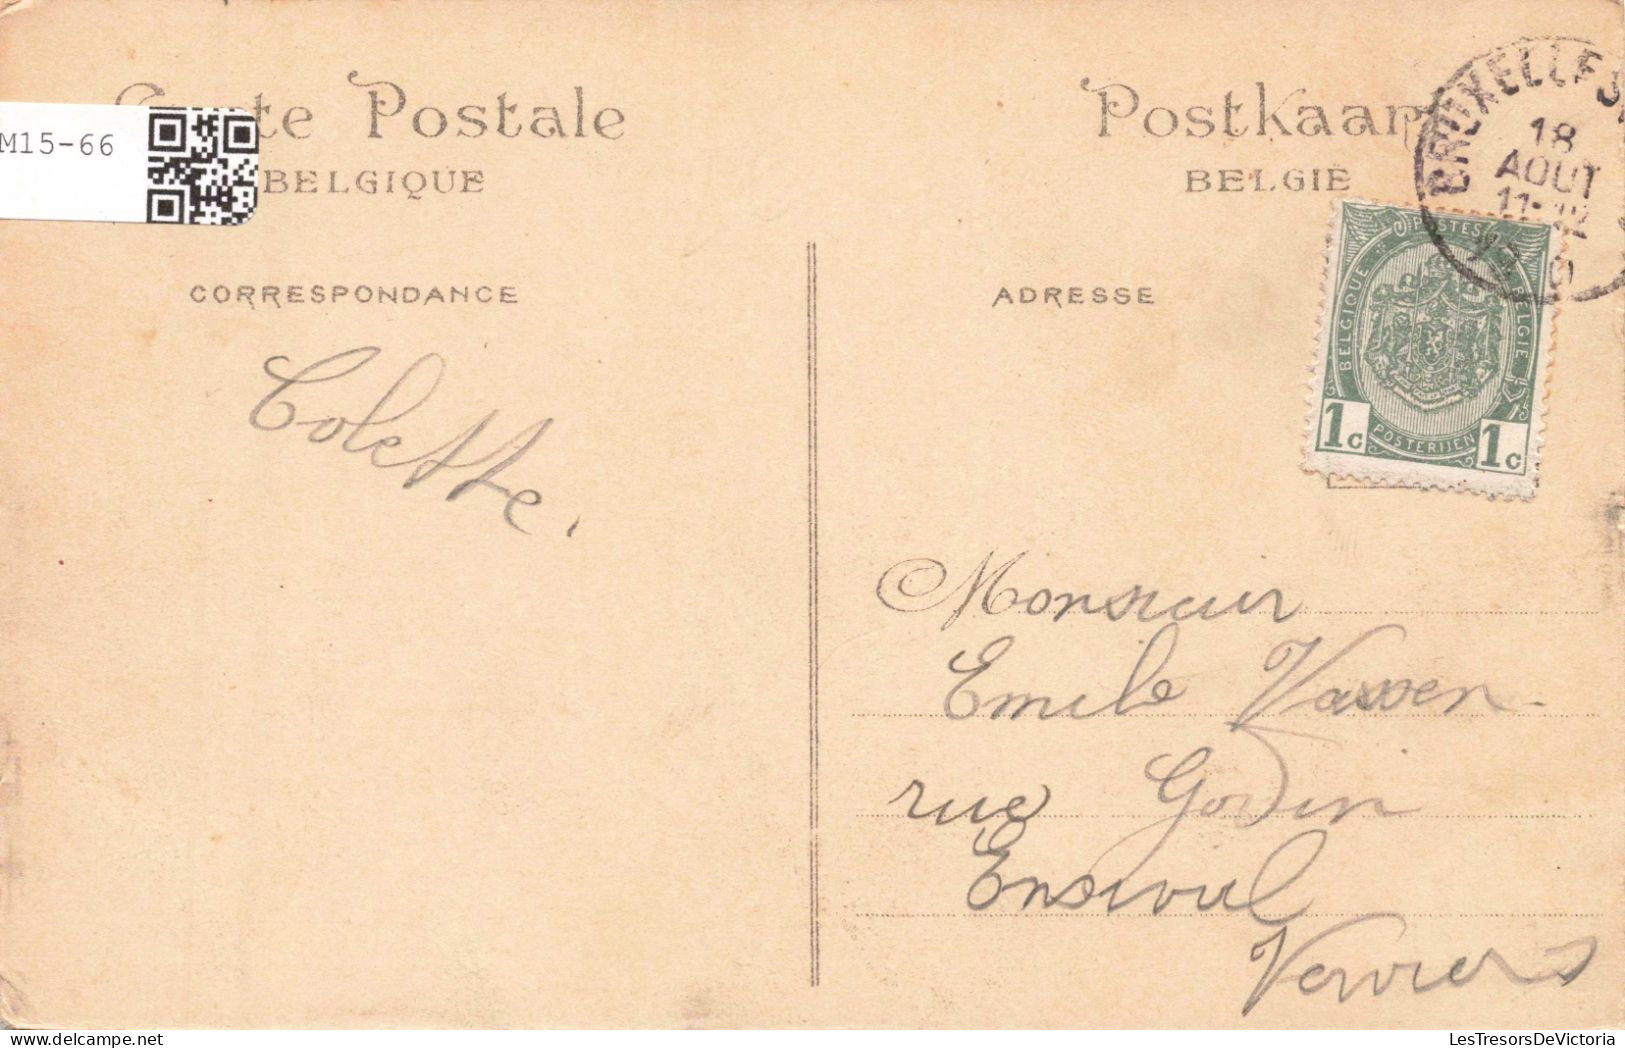 Carte Postale
BELGIQUE
M15-66
CORRESPONDANCE
Colette.
Postkaart
BELGIË
ADRESSE
BRUXELLES
18
AOUT
11-12
POSTES
BELGIQUE
BELGIE
POSTERIJEN
1c 1c
Monsieur
Emile Vassen.
rue Godin
Ensival
Verviers
LesTresorsDeVictoria